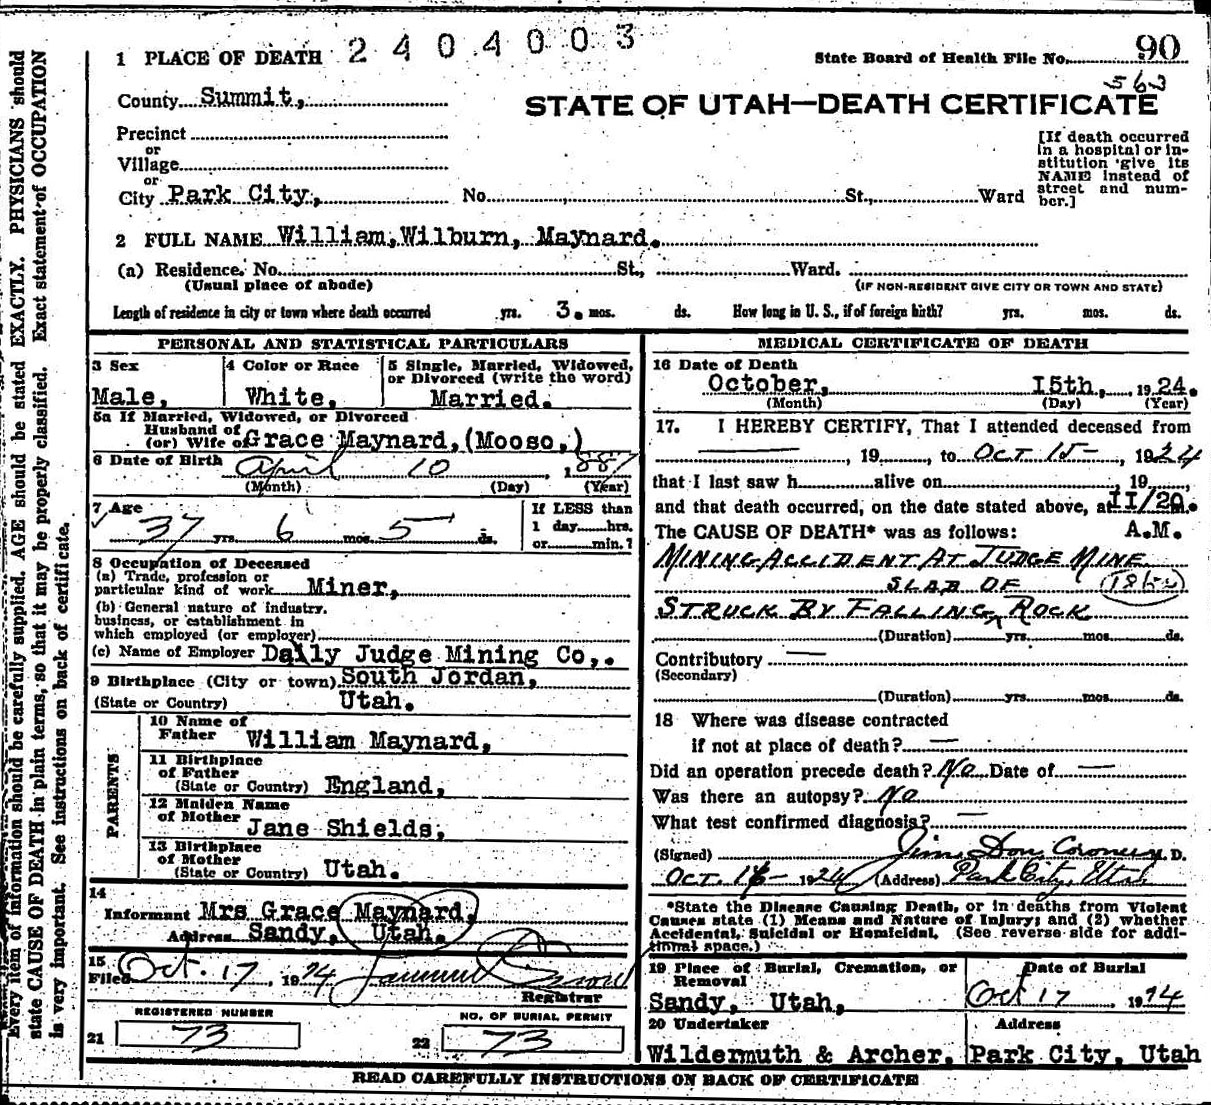 Every item of information should be carefully supplied. AGE should be stated EXACTLY. PHYSICIANS should
state CAUSE OF DEATH in plain terms, so that it may be properly classified. Exact statement of OCCUPATION
is very important. See instructions on back of certificate.
1 PLACE OF DEATH 2404003
State Board of Health File No. 90
563
County Summit,
STATE OF UTAH—DEATH CERTIFICATE
Precinct
or
Village
or
City Park City, No. St., Ward
[If death occurred
in a hospital or in-
stitution give its
NAME instead of
street and num-
ber.]
2 FULL NAME William, Wilburn, Maynard.
(a) Residence. No. St., Ward.
(Usual place of abode) (IF NON-RESIDENT GIVE CITY OR TOWN AND STATE)
Length of residence in city or town where death occurred yrs. 3. mos. ds. How long in U. S., if of foreign birth? yrs. mos. ds.
PERSONAL AND STATISTICAL PARTICULARS
3 Sex
Male,
4 Color or Race
White,
5 Single, Married, Widowed,
or Divorced (write the word)
Married.
5a If Married, Widowed, or Divorced
Husband of
(or) Wife of Grace Maynard, (Mooso,)
6 Date of Birth April 10, 1887
(Month) (Day) (Year)
7 Age
37 yrs. 6 mos. 5 ds.
If LESS than
1 day hrs.
or min.?
8 Occupation of Deceased
(a) Trade, profession or
particular kind of work Miner,
(b) General nature of industry.
business, or establishment in
which employed (or employer)
(c) Name of Employer Daily Judge Mining Co,.
9 Birthplace (City or town) South Jordan,
(State or Country) Utah.
PARENTS
10 Name of
Father William Maynard,
11 Birthplace
of Father
(State or Country) England,
12 Maiden Name
of Mother Jane Shields,
13 Birthplace
of Mother
(State or Country) Utah.
14
Informant Mrs Grace Maynard,
Address Sandy, Utah.
15
Filed Oct. 17, 1924
Registrar
REGISTERED NUMBER
21 73
NO. OF BURIAL PERMIT
22 73
MEDICAL CERTIFICATE OF DEATH
16 Date of Death
October, 15th, 1924.
(Month) (Day) (Year)
17. I HEREBY CERTIFY, That I attended deceased from
, 19 , to OCT 15-, 1924
that I last saw h alive on , 19 ,
and that death occurred, on the date stated above, at 11/20 m.
The CAUSE OF DEATH* was as follows: A.M.
MINING ACCIDENT AT JUDGE MINE
SLAB OF
STRUCK BY FALLING ^ ROCK
(Duration) yrs. mos. ds.
Contributory —
(Secondary)
(Duration) yrs. mos. ds.
18 Where was disease contracted
if not at place of death? —
Did an operation precede death? No Date of —
Was there an autopsy? No
What test confirmed diagnosis? —
(Signed) Coroner M. D.
OCT. 16- 1924 (Address) Park City, Utah
*State the Disease Causing Death, or in deaths from Violent
Causes state (1) Means and Nature of Injury; and (2) whether
Accidental, Suicidal or Homicidal. (See reverse side for addi-
tional space.)
19 Place of Burial, Cremation, or
Removal
Sandy, Utah,
Date of Burial
Oct 17, 1924
20 Undertaker
Wildermuth & Archer.
Address
Park City, Utah
READ CAREFULLY INSTRUCTIONS ON BACK OF CERTIFICATE